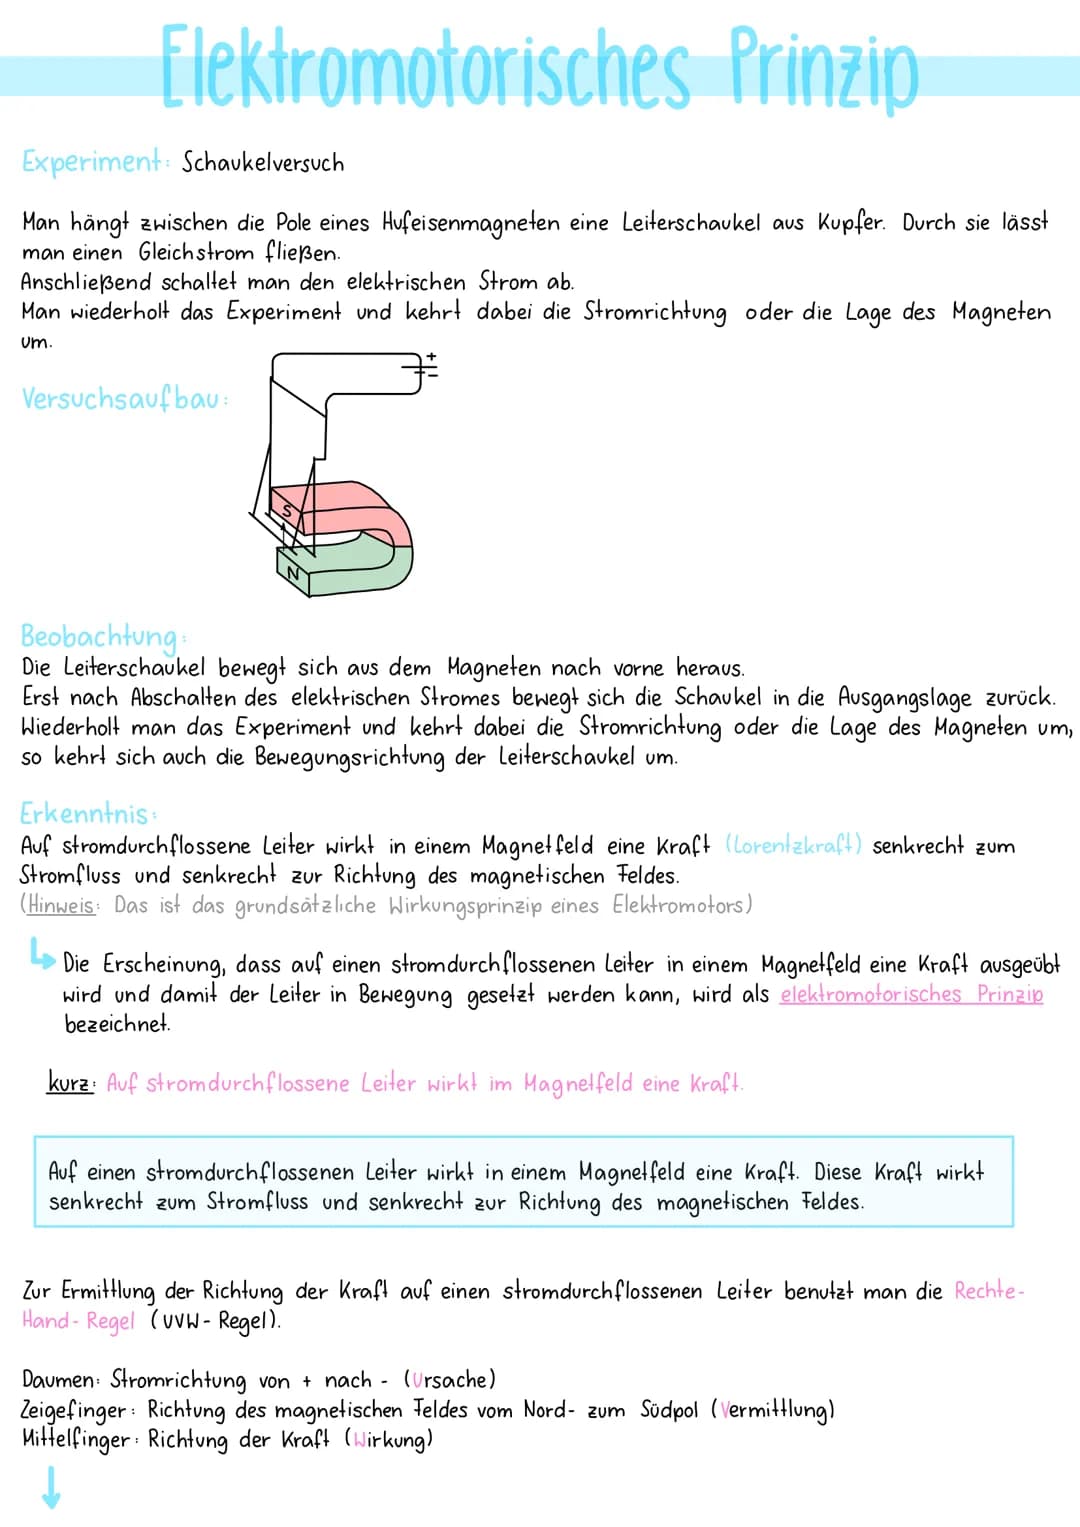 Elektromotorisches Prinzip
Experiment: Schaukelversuch
Man hängt zwischen die Pole eines Hufeisenmagneten eine Leiterschaukel aus Kupfer. Durch sie lässt
man einen Gleichstrom fließen.
Anschließend schaltet man den elektrischen Strom ab.
Man wiederholt das Experiment und kehrt dabei die Stromrichtung oder die Lage des Magneten
um.
+
-
Versuchsaufbau:
S
N
Beobachtung:
Die Leiterschaukel bewegt sich aus dem Magneten nach vorne heraus.
Erst nach Abschalten des elektrischen Stromes bewegt sich die Schaukel in die Ausgangslage zurück.
Wiederholt man das Experiment und kehrt dabei die Stromrichtung oder die Lage des Magneten um,
so kehrt sich auch die Bewegungsrichtung der Leiterschaukel um.
Erkenntnis:
Auf stromdurchflossene Leiter wirkt in einem Magnetfeld eine Kraft (Lorentzkraft) senkrecht zum
Stromfluss und senkrecht zur Richtung des magnetischen Feldes.
(Hinweis: Das ist das grundsätzliche Wirkungsprinzip eines Elektromotors)
Die Erscheinung, dass auf einen stromdurchflossenen Leiter in einem Magnetfeld eine Kraft ausgeübt
wird und damit der Leiter in Bewegung gesetzt werden kann, wird als elektromotorisches Prinzip
bezeichnet.
kurz: Auf stromdurchflossene Leiter wirkt im Magnetfeld eine Kraft.
Auf einen stromdurchflossenen Leiter wirkt in einem Magnetfeld eine Kraft. Diese Kraft wirkt
senkrecht zum Stromfluss und senkrecht zur Richtung des magnetischen Feldes.
Zur Ermittlung der Richtung der Kraft auf einen stromdurchflossenen Leiter benutzt man die Rechte-
Hand-Regel (UVW-Regel).
Daumen: Stromrichtung von + nach - (Ursache)
Zeigefinger: Richtung des magnetischen Feldes vom Nord- zum Südpol (Vermittlung)
Mittelfinger: Richtung der Kraft (Wirkung)